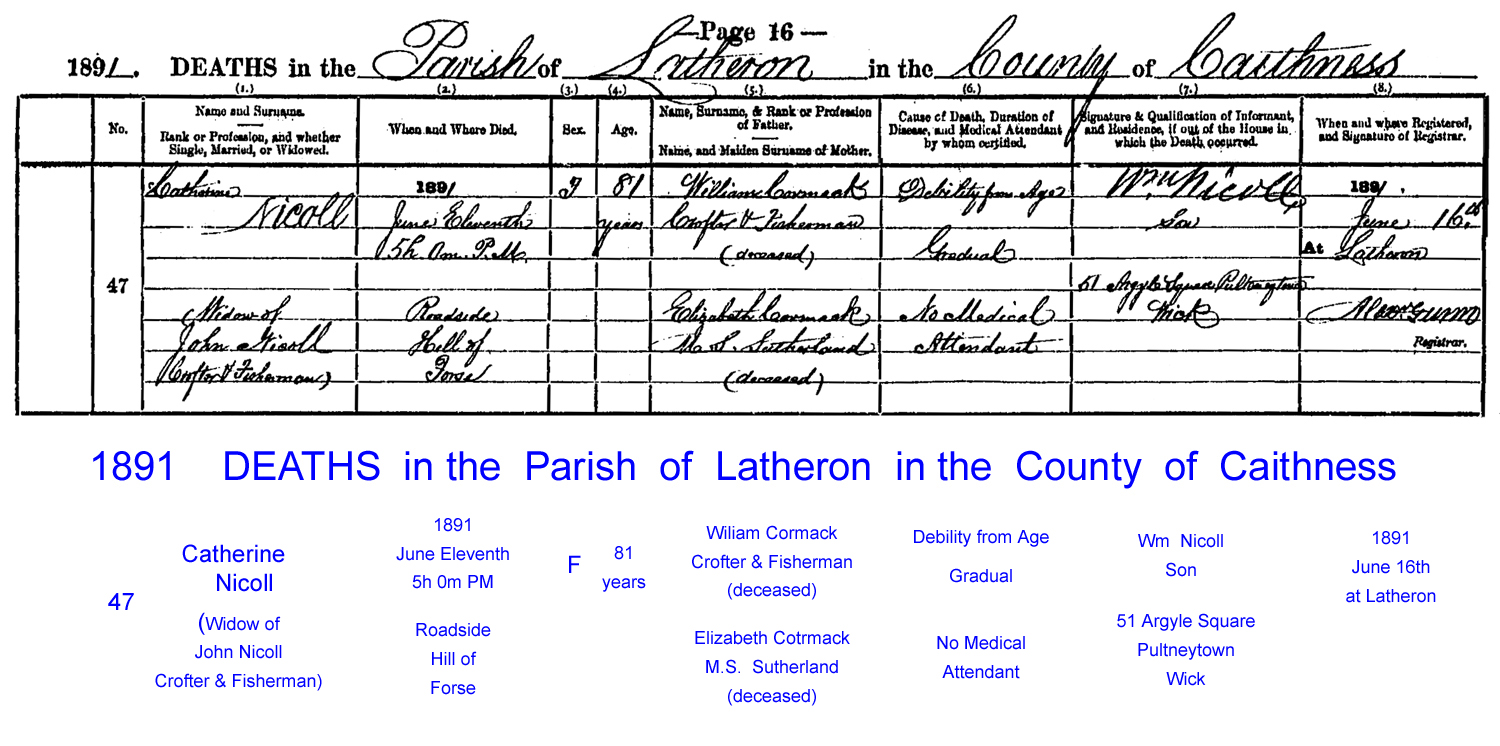 —Page 16—
1891. DEATHS in the Parish of Latheron in the County of Caithness
(1.) (2.) (3.) (4.) (5.) (6.) (7.) (8.)
No.
Name and Surname.
Rank or Profession, and whether
Single, Married, or Widowed.
When and Where Died.
Sex.
Age.
Name, Surname, & Rank or Profession
of Father.
Name, and Maiden Surname of Mother.
Cause of Death, Duration of
Disease, and Medical Attendant
by whom certified.
Signature & Qualification of Informant,
and Residence, if out of the House in
which the Death occurred.
When and where Registered,
and Signature of Registrar.
47
Catherine
Nicoll
Widow of
John Nicoll
(Crofter & Fisherman)
1891
June Eleventh
5h 0m. P.M.
Roadside
Hill of
Forse
F
81
years
William Cormack
Crofter & Fisherman
(deceased)
Elizabeth Cormack
M.S. Sutherland
(deceased)
Debility from Age
Gradual
No Medical
Attendant
Wm Nicoll
Son
51 Argyle Square Pultneytown
Wick
1891.
June 16th
At Latheron
Alexr Gunn
Registrar.
1891 DEATHS in the Parish of Latheron in the County of Caithness
47
Catherine
Nicoll
(Widow of
John Nicoll
Crofter & Fisherman)
1891
June Eleventh
5h 0m PM
Roadside
Hill of
Forse
F
81
years
Wiliam Cormack
Crofter & Fisherman
(deceased)
Elizabeth Cotrmack
M.S. Sutherland
(deceased)
Debility from Age
Gradual
No Medical
Attendant
Wm Nicoll
Son
51 Argyle Square
Pultneytown
Wick
1891
June 16th
at Latheron